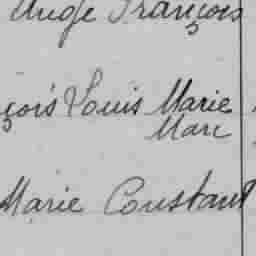 Ange François
çois Louis Marie
Marc
Marie Constant